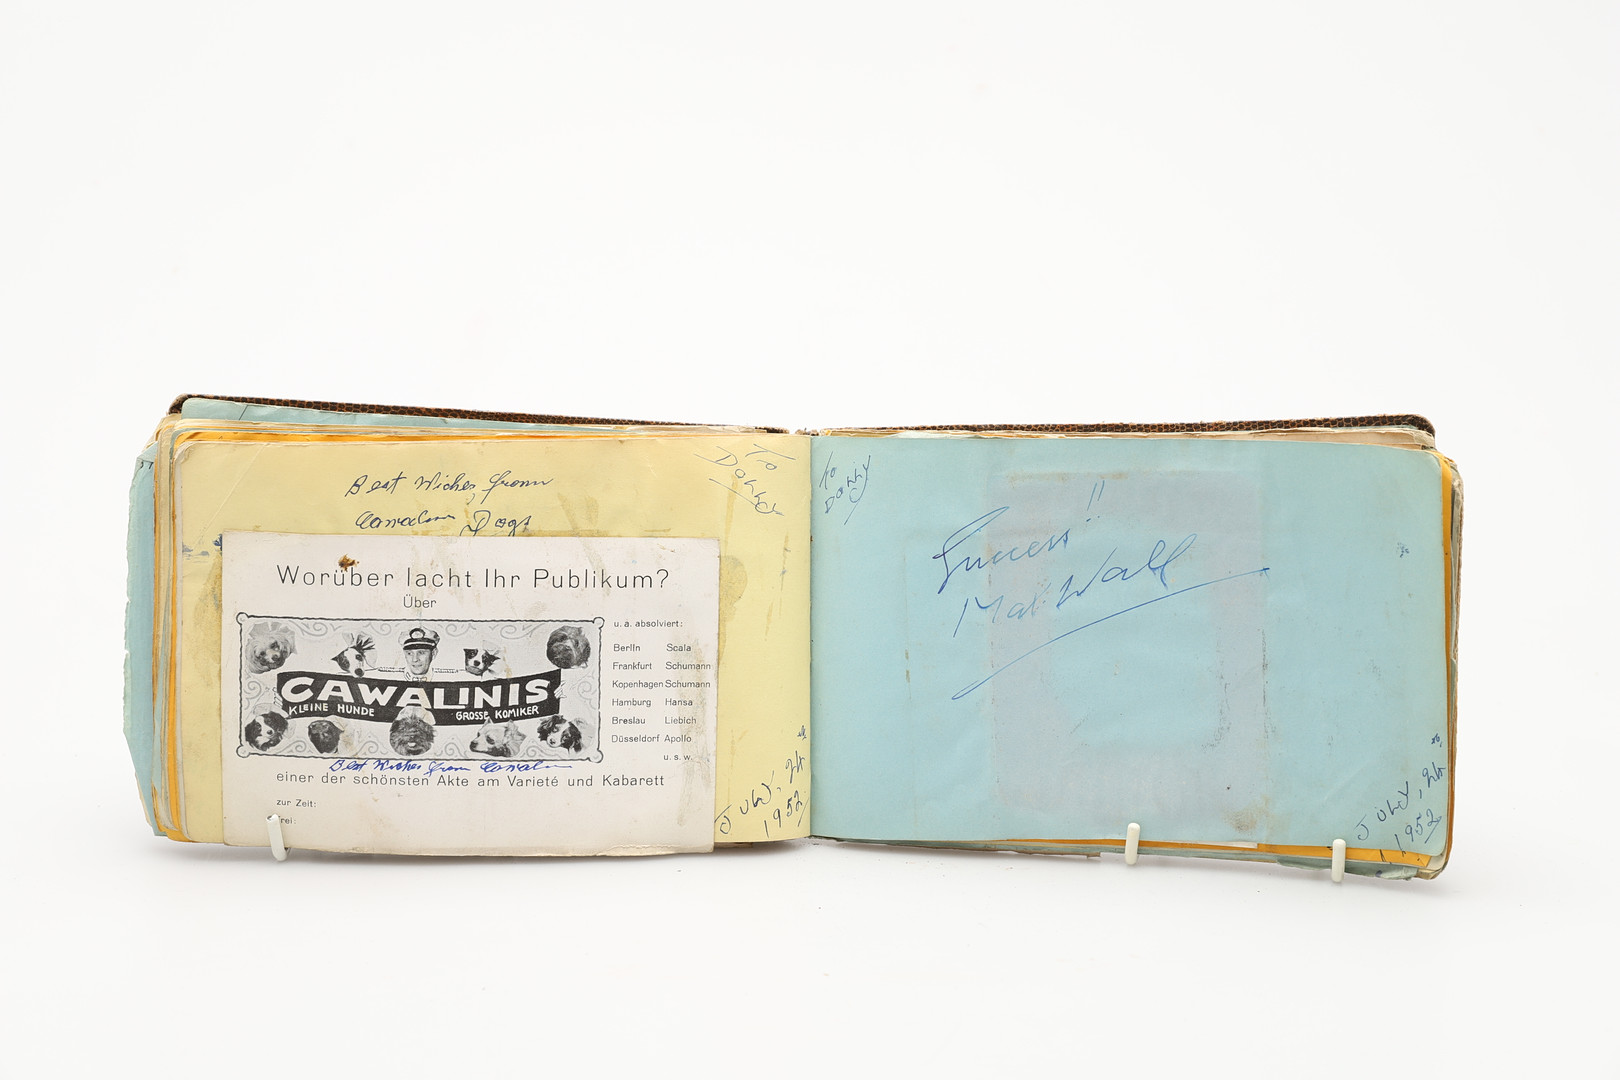 Best Wiches from
Cawalini Dogs
To
Dolly
Worüber lacht Ihr Publikum?
Über
CAWALINIS
KLEINE HUNDE GROSSE KOMIKER
u. a. absolviert:
Berlin Scala
Frankfurt Schumann
Kopenhagen Schumann
Hamburg Hansa
Breslau Liebich
Düsseldorf Apollo
u. s. w.
Best Wiches from Cawalini
einer der schönsten Akte am Varieté und Kabarett
zur Zeit:
frei:
July,
1952
To
Dolly
Success!!
Max Wall
July,
1952